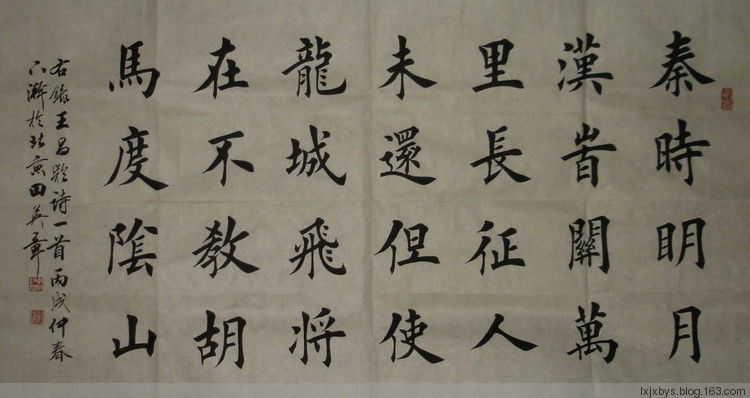 秦時明月
漢旹關萬
里長征人
未還但使
龍城飛将
在不教胡
馬度陰山
右錄王昌齡詩一首丙戌仲春
下澣於北京田英章
lxjxbys.blog.163.com